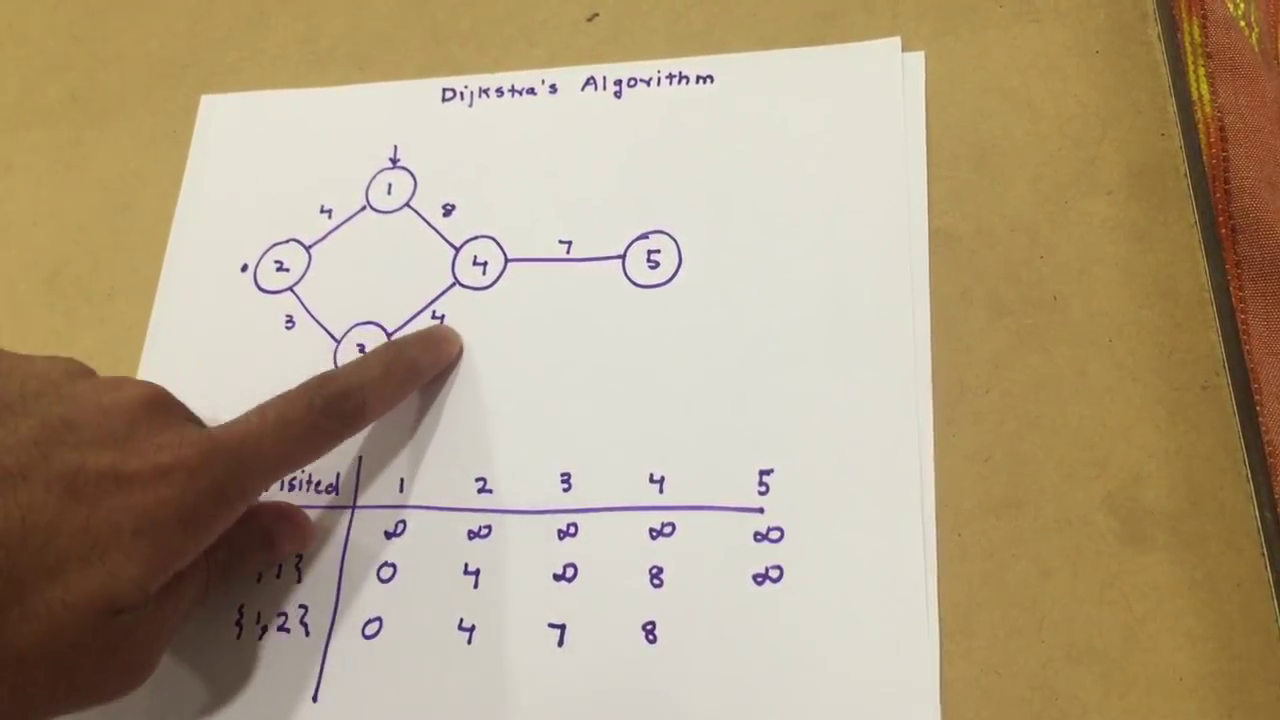 Dijkstra's Algorithm
1
4 8
2 4 7 5
3 4
3
isited 1 2 3 4 5
∞ ∞ ∞ ∞ ∞
1} 0 4 ∞ 8 ∞
{1,2} 0 4 7 8